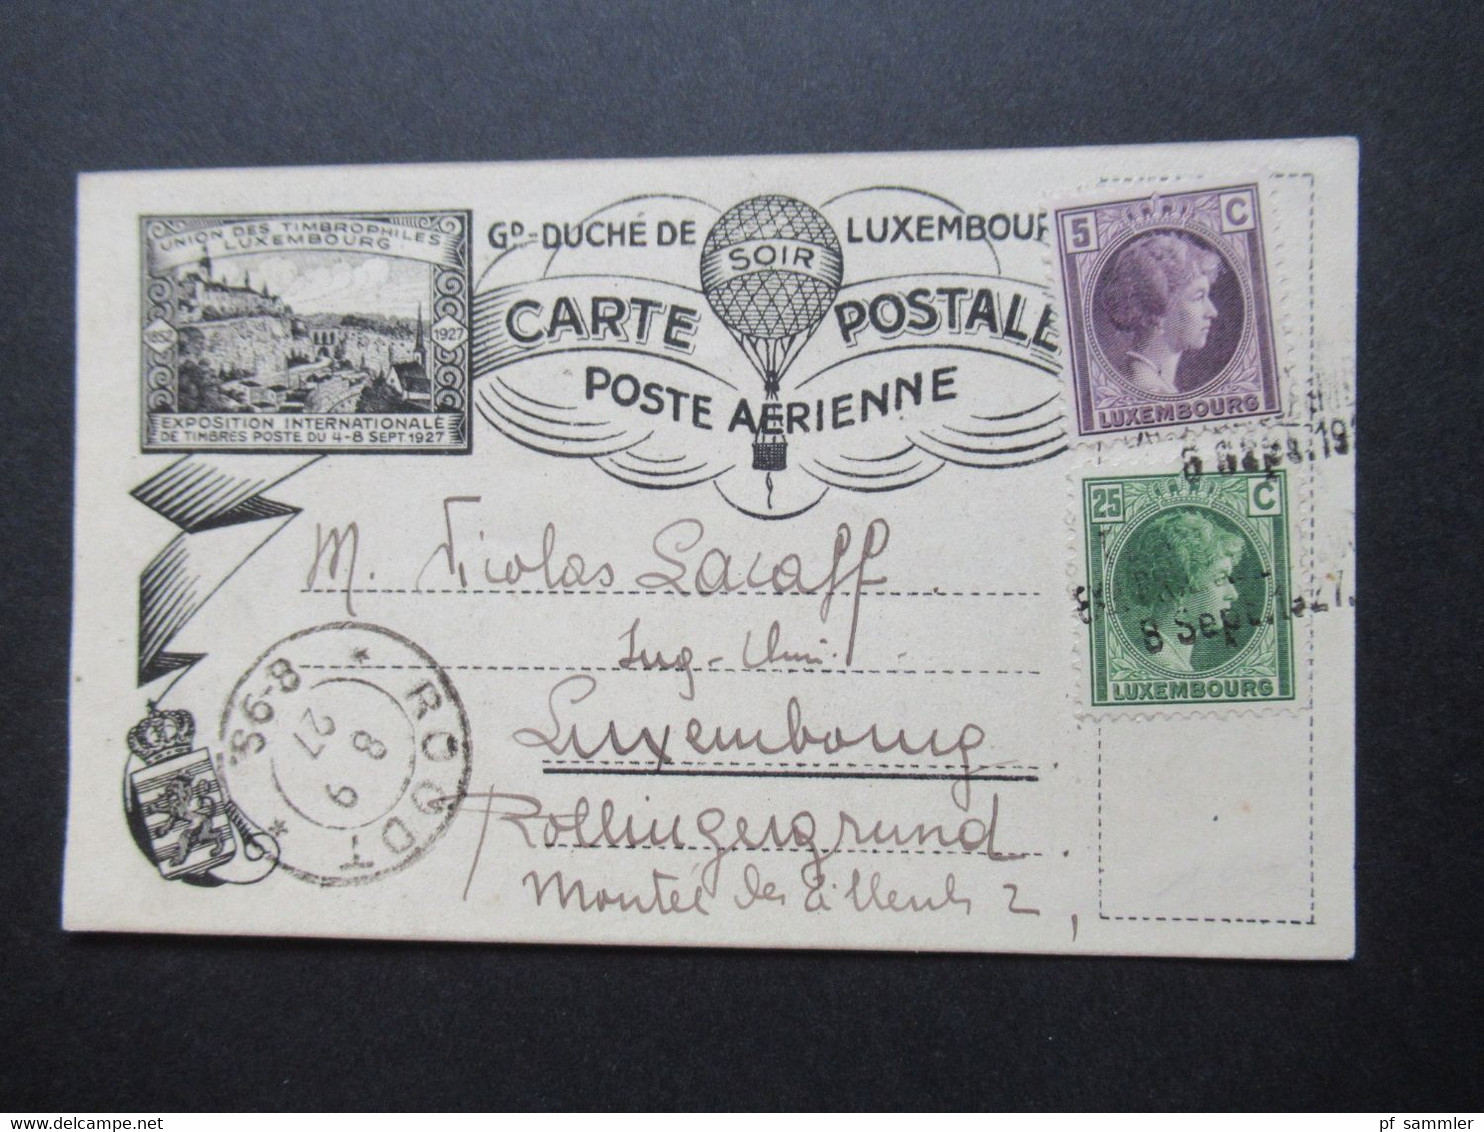 UNION DES TIMBROPHILES
LUXEMBOURG
1927
EXPOSITION INTERNATIONALE
DE TIMBRES POSTE DU 4-8 SEPT. 1927
GD-DUCHÉ DE LUXEMBOUR
SOIR
CARTE POSTALE
POSTE AÉRIENNE
5 C
LUXEMBOURG
25 C
LUXEMBOURG
8 Sept. 1927.
M. Nicolas Lacaff
Ing-Chim.
Luxembourg
Rollingergrund
Montée des Tilleuls 2,
* ROODT *
8-9S
8 9
27
pf_sammler